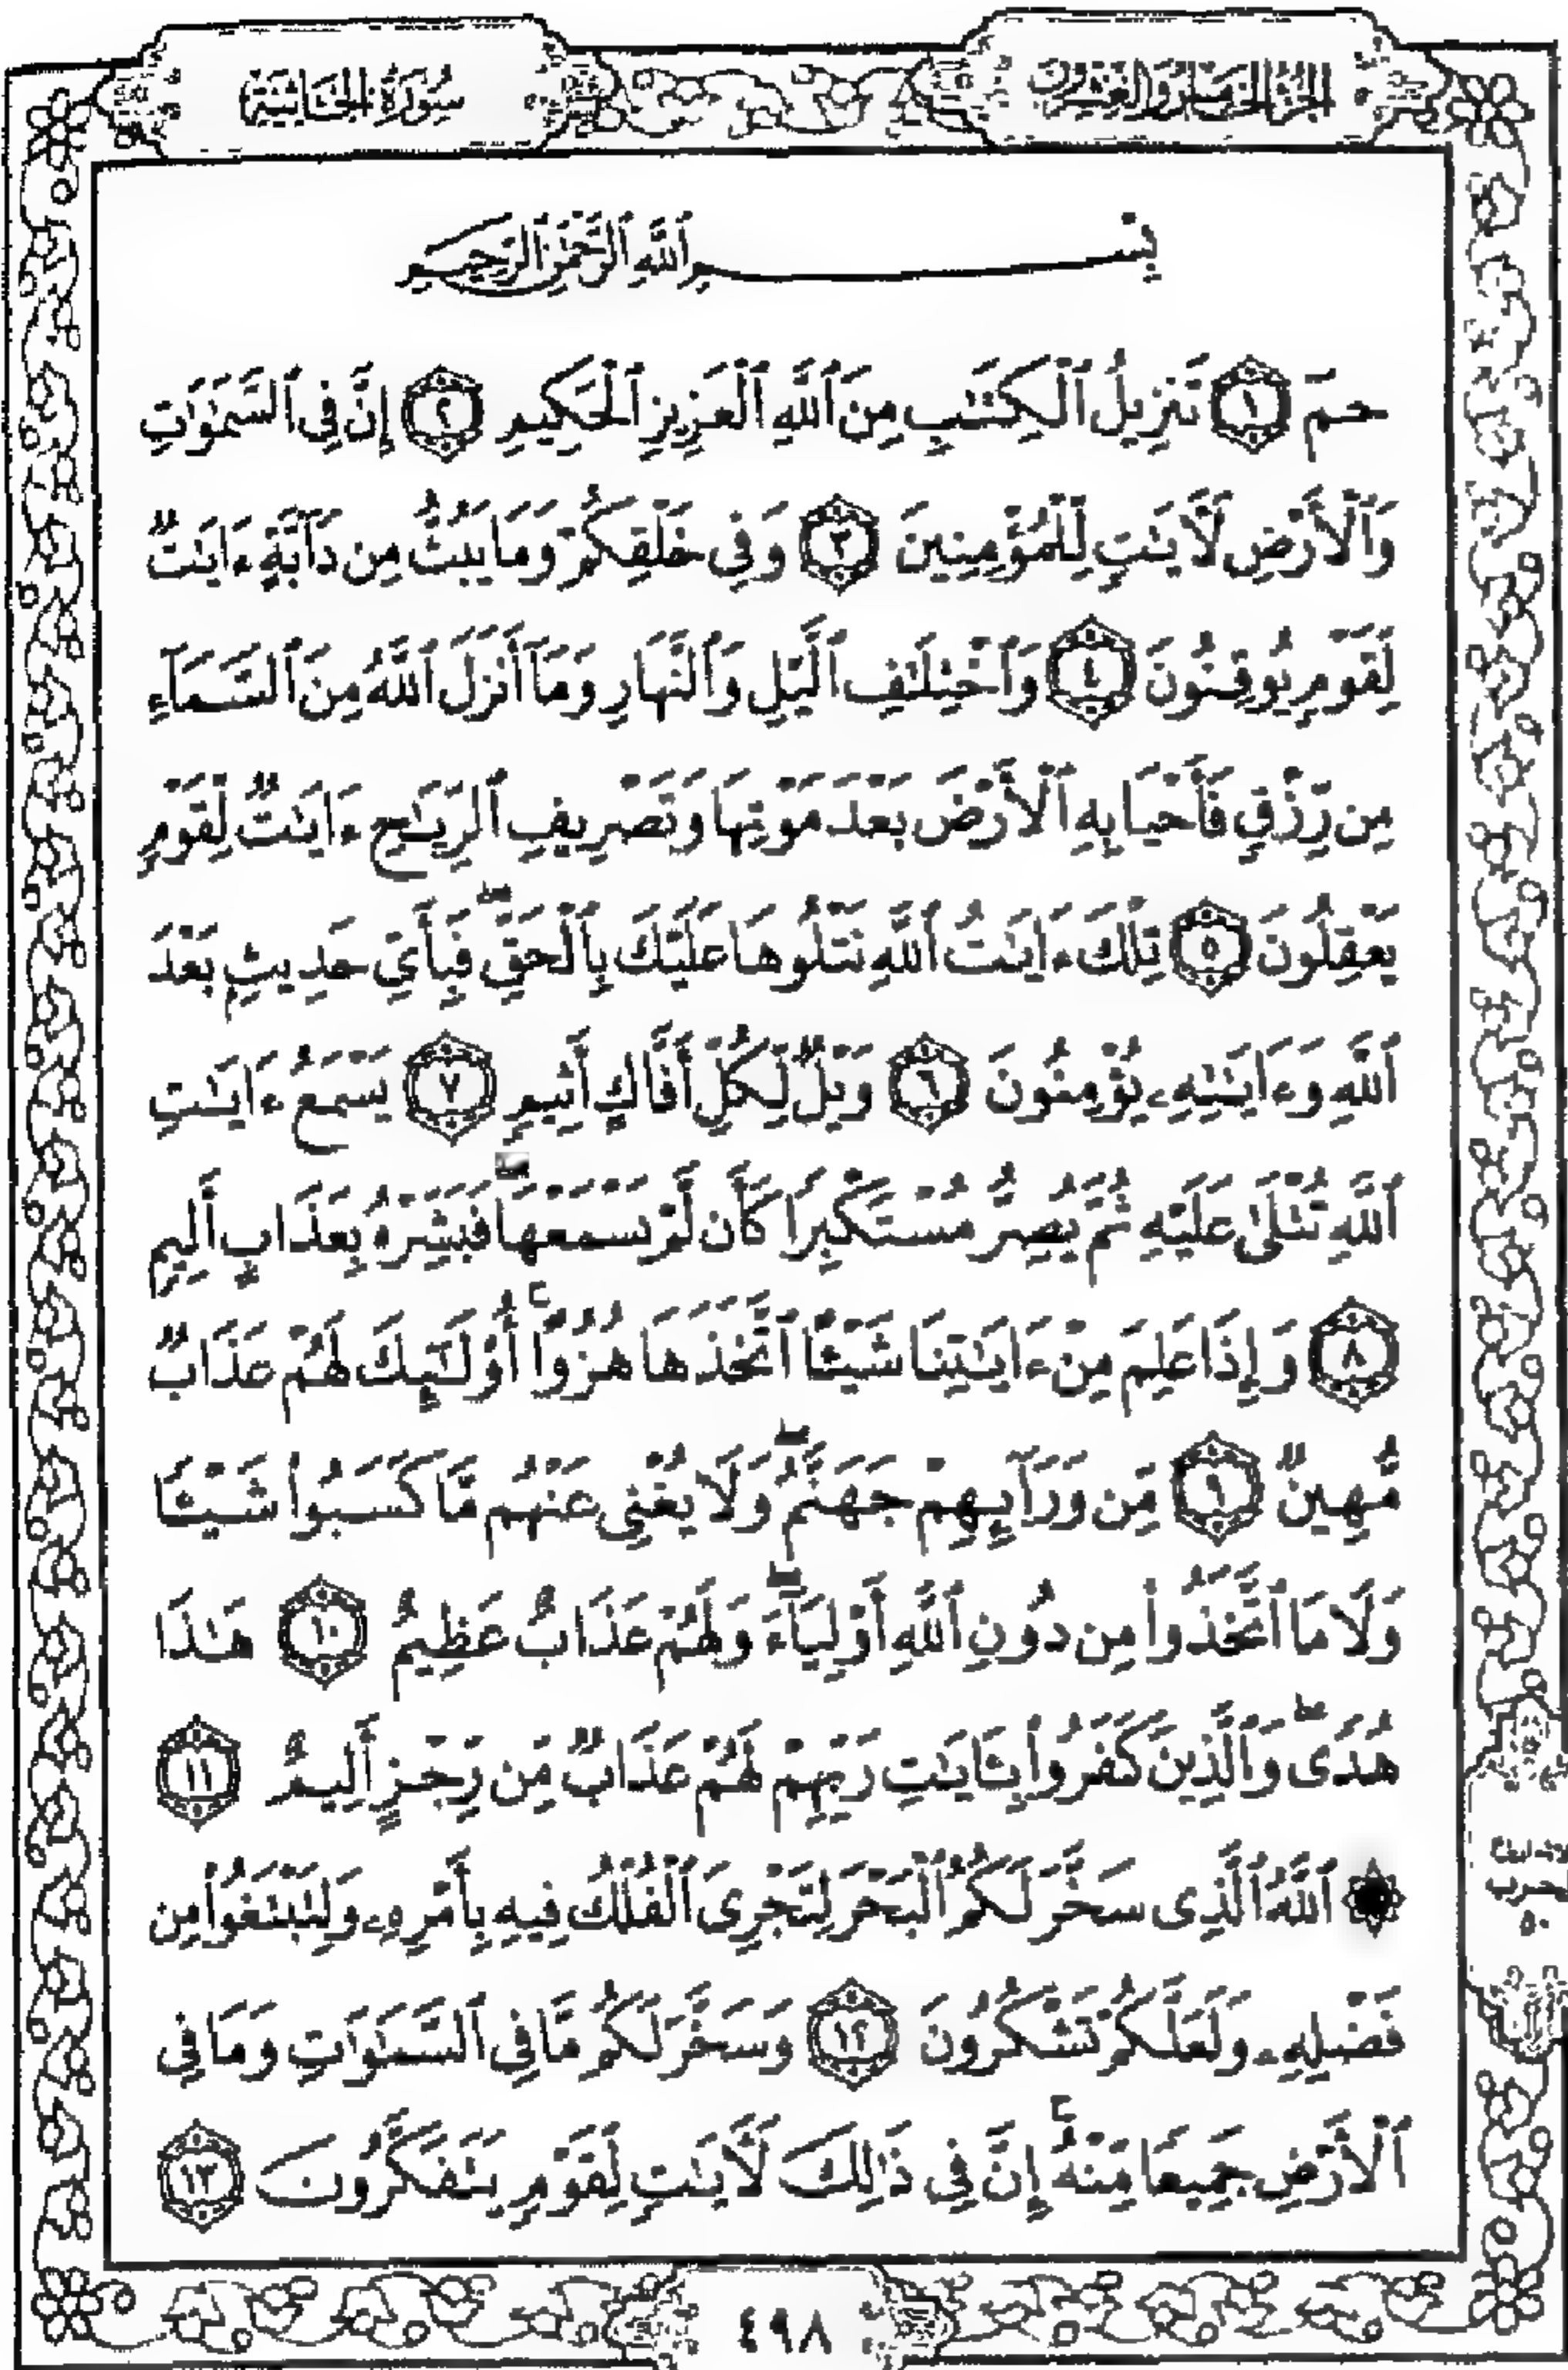 الجزء الخامس والعشرون
سورة الجاثية
بِسْمِ ٱللَّهِ ٱلرَّحْمَٰنِ ٱلرَّحِيمِ
حمٓ ١ تَنزِيلُ ٱلْكِتَٰبِ مِنَ ٱللَّهِ ٱلْعَزِيزِ ٱلْحَكِيمِ ٢ إِنَّ فِى ٱلسَّمَٰوَٰتِ
وَٱلْأَرْضِ لَءَايَٰتٍ لِّلْمُؤْمِنِينَ ٣ وَفِى خَلْقِكُمْ وَمَا يَبُثُّ مِن دَآبَّةٍ ءَايَٰتٌ
لِّقَوْمٍ يُوقِنُونَ ٤ وَٱخْتِلَٰفِ ٱلَّيْلِ وَٱلنَّهَارِ وَمَآ أَنزَلَ ٱللَّهُ مِنَ ٱلسَّمَآءِ
مِن رِّزْقٍ فَأَحْيَا بِهِ ٱلْأَرْضَ بَعْدَ مَوْتِهَا وَتَصْرِيفِ ٱلرِّيَٰحِ ءَايَٰتٌ لِّقَوْمٍ
يَعْقِلُونَ ٥ تِلْكَ ءَايَٰتُ ٱللَّهِ نَتْلُوهَا عَلَيْكَ بِٱلْحَقِّ ۖ فَبِأَىِّ حَدِيثٍۭ بَعْدَ
ٱللَّهِ وَءَايَٰتِهِۦ يُؤْمِنُونَ ٦ وَيْلٌ لِّكُلِّ أَفَّاكٍ أَثِيمٍ ٧ يَسْمَعُ ءَايَٰتِ
ٱللَّهِ تُتْلَىٰ عَلَيْهِ ثُمَّ يُصِرُّ مُسْتَكْبِرًا كَأَن لَّمْ يَسْمَعْهَا ۖ فَبَشِّرْهُ بِعَذَابٍ أَلِيمٍ
٨ وَإِذَا عَلِمَ مِنْ ءَايَٰتِنَا شَيْـًٔا ٱتَّخَذَهَا هُزُوًا ۚ أُو۟لَٰٓئِكَ لَهُمْ عَذَابٌ
مُّهِينٌ ٩ مِّن وَرَآئِهِمْ جَهَنَّمُ ۖ وَلَا يُغْنِى عَنْهُم مَّا كَسَبُوا۟ شَيْـًٔا
وَلَا مَا ٱتَّخَذُوا۟ مِن دُونِ ٱللَّهِ أَوْلِيَآءَ ۖ وَلَهُمْ عَذَابٌ عَظِيمٌ ١٠ هَٰذَا
هُدًى ۖ وَٱلَّذِينَ كَفَرُوا۟ بِـَٔايَٰتِ رَبِّهِمْ لَهُمْ عَذَابٌ مِّن رِّجْزٍ أَلِيمٌ ١١
۞ ٱللَّهُ ٱلَّذِى سَخَّرَ لَكُمُ ٱلْبَحْرَ لِتَجْرِىَ ٱلْفُلْكُ فِيهِ بِأَمْرِهِۦ وَلِتَبْتَغُوا۟ مِن
فَضْلِهِۦ وَلَعَلَّكُمْ تَشْكُرُونَ ١٢ وَسَخَّرَ لَكُم مَّا فِى ٱلسَّمَٰوَٰتِ وَمَا فِى
ٱلْأَرْضِ جَمِيعًا مِّنْهُ ۚ إِنَّ فِى ذَٰلِكَ لَءَايَٰتٍ لِّقَوْمٍ يَتَفَكَّرُونَ ١٣
٥٠
٤٩٨